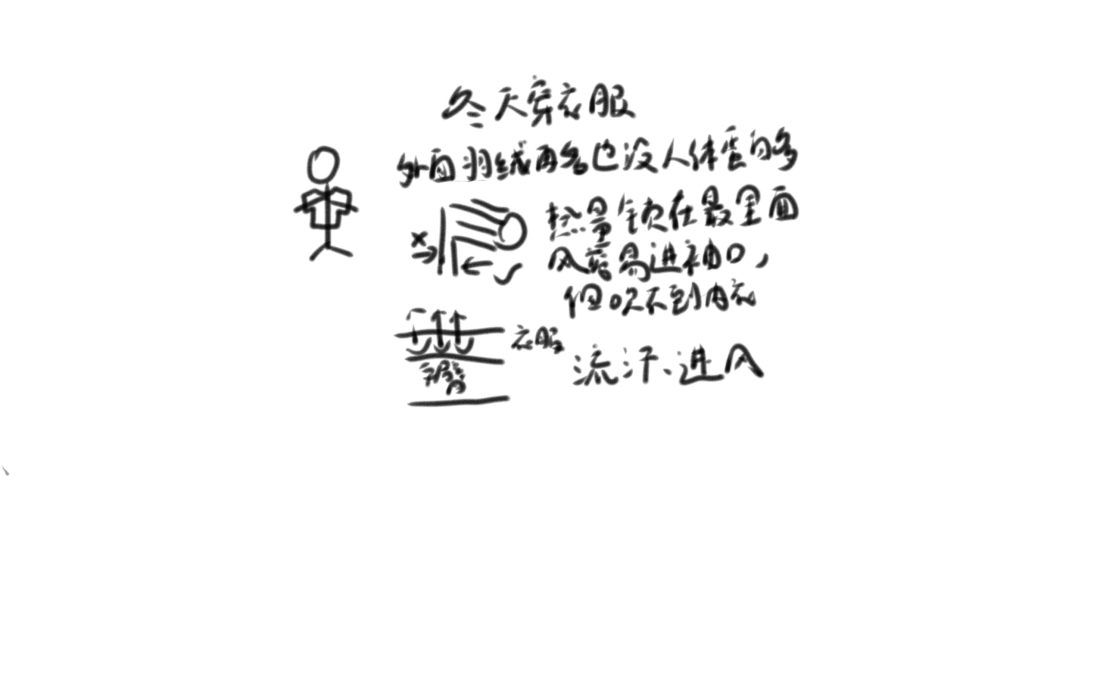 冬天穿衣服
外面羽绒再多也没人体蛋白多
热量锁在最里面
风容易进袖口，
但吹不到内衣
衣服
手臂
流汗、进风